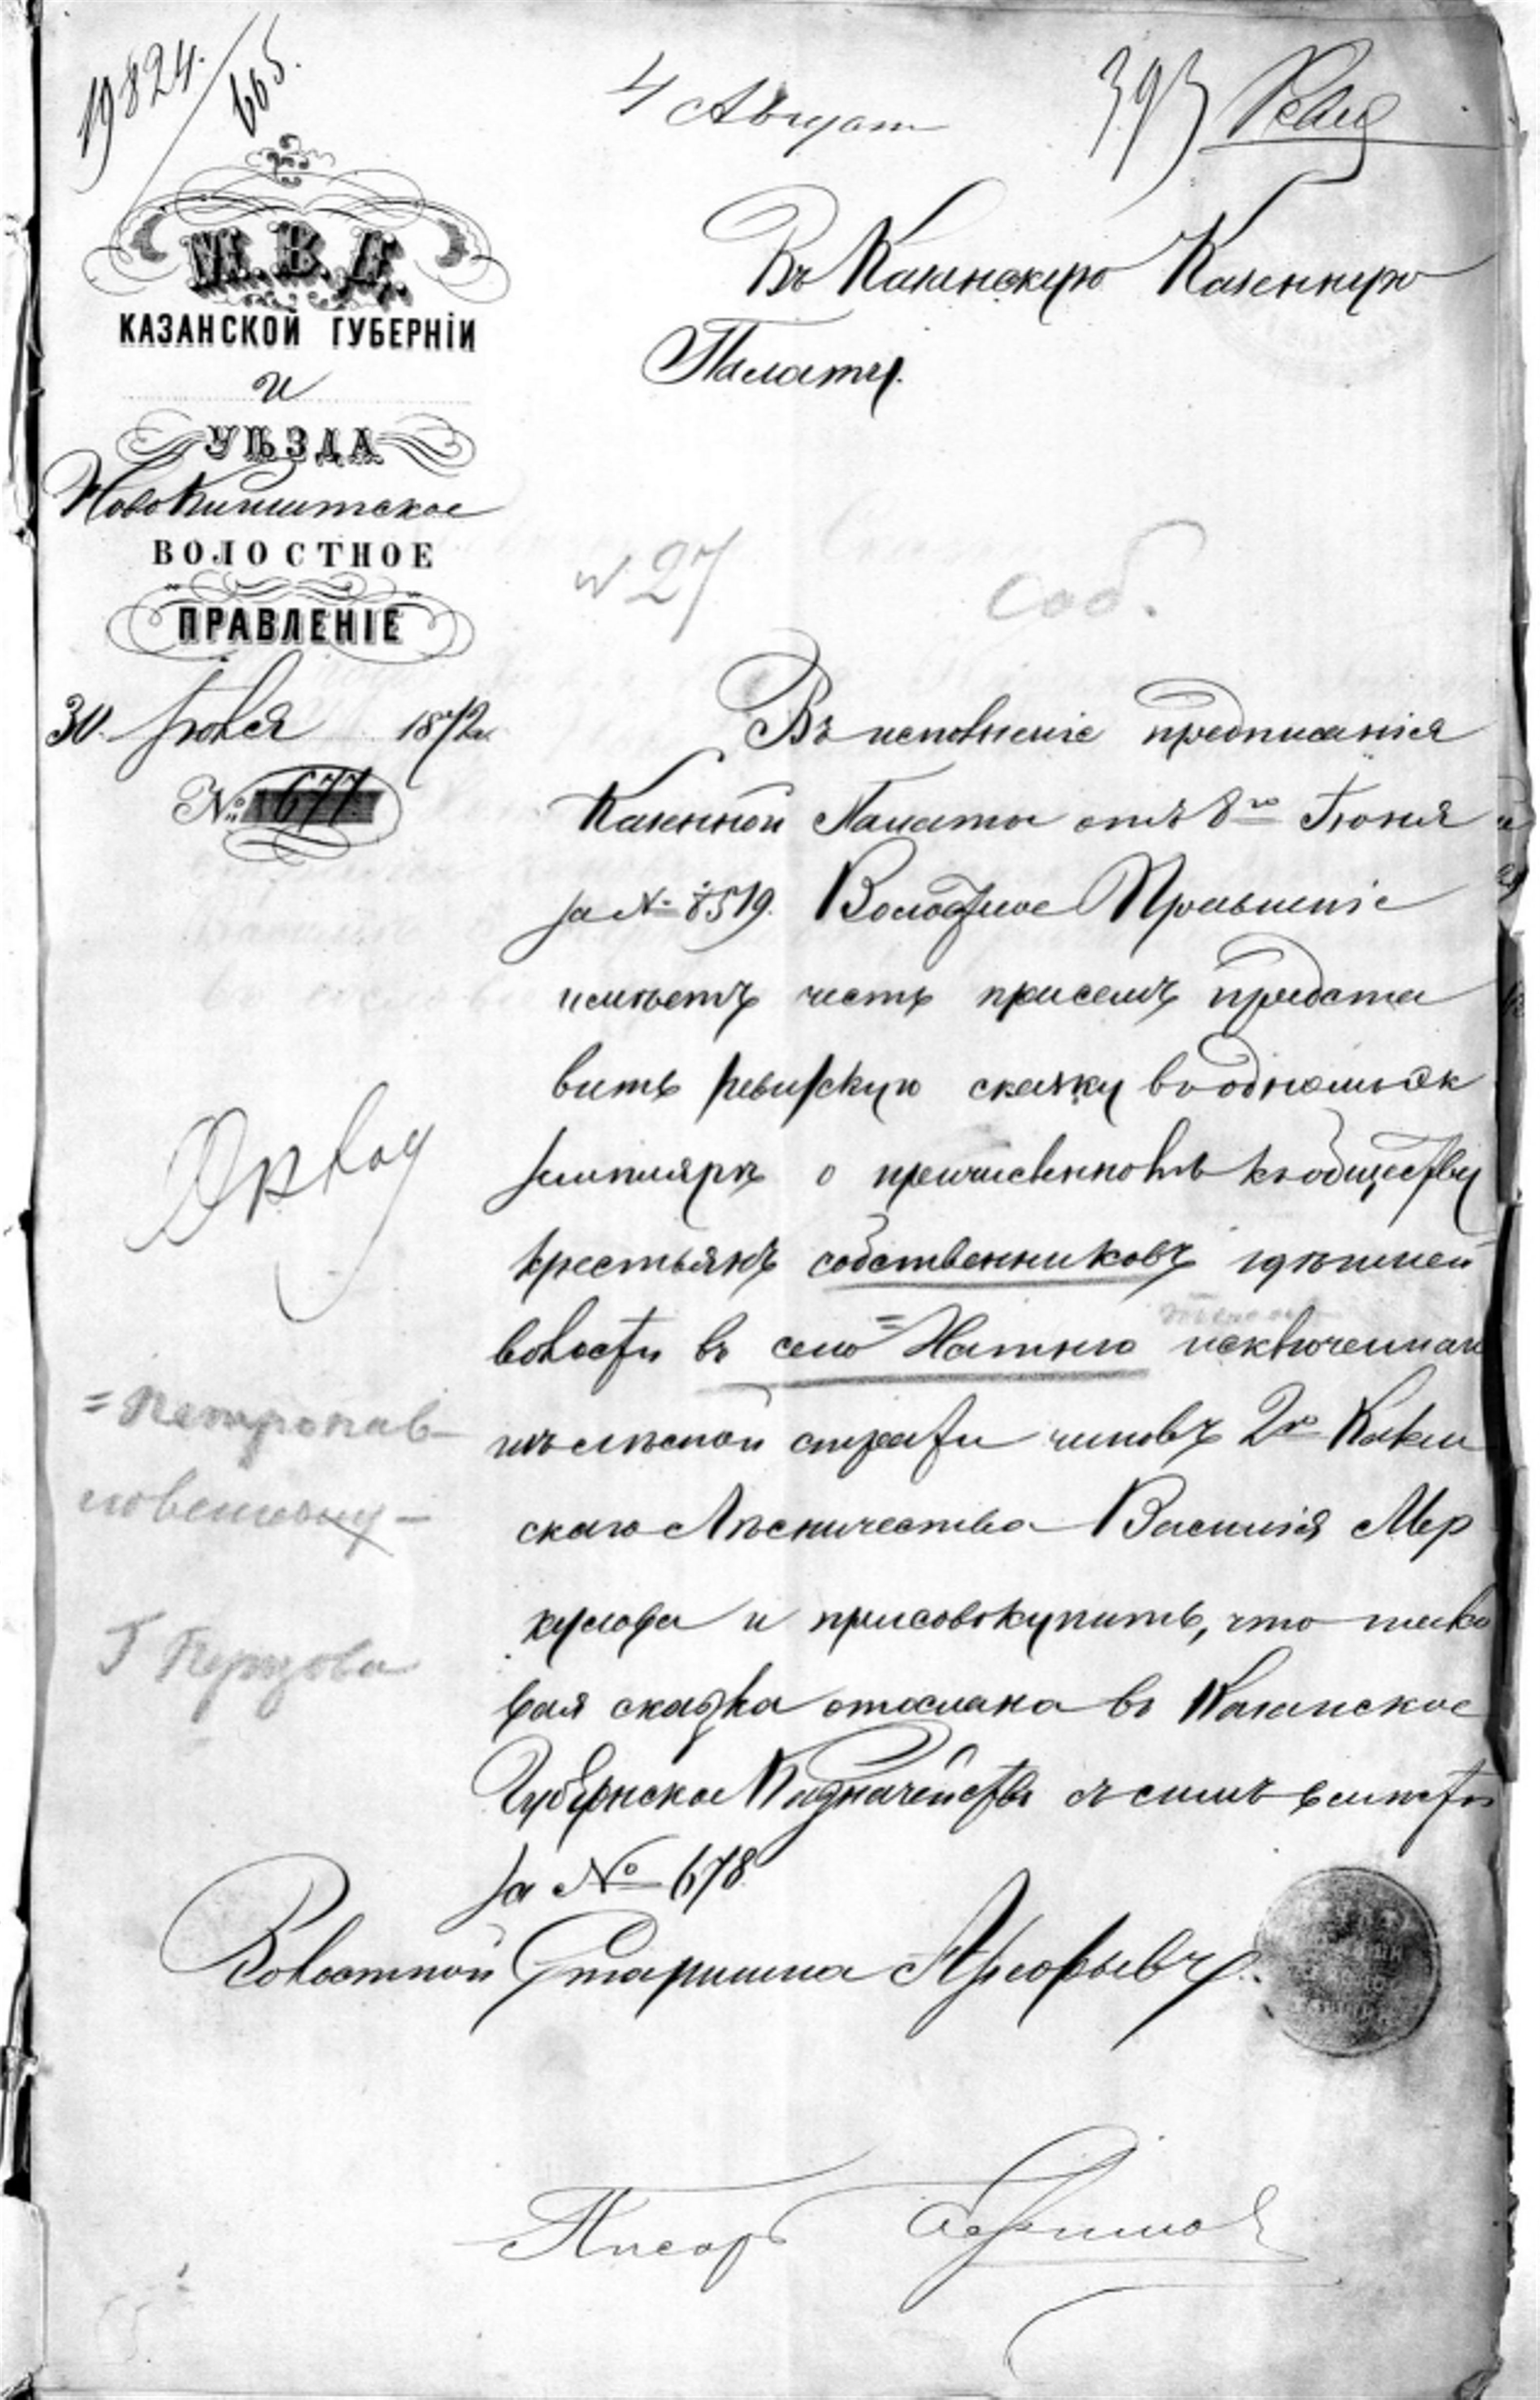 19824.
665.
4 Август
393
М.В.Д.
КАЗАНСКОЙ ГУБЕРНІИ
и
УѢЗДА
НовоКишитское
ВОЛОСТНОЕ
ПРАВЛЕНІЕ
30 Іюля 1872 г.
№ 677
Въ Казанскую Казенную
Палату.
№ 27
Соб.
Въ исполненіе предписанія
Казенной Палаты отъ 8го Іюня
за № 8519. Волостное Правленіе
имѣетъ честь присемъ предста
вить ревизскую сказку водномъ эк
земплярѣ о причисленномъ къ обществу
крестьянъ собственниковъ здѣшней
волости въ село Натыго исключеннаго
изъ лѣсной стражи чиновъ 2го Кокш
скаго Лѣсничества Василія Мер
кулова и присовокупить, что тако
вая сказка отослана въ Казанское
Губернское Казначейство съ симъ вмѣстѣ
за № 678
= Петропав
ловскому
Г Перцова
Волостной Старшина
Писарь